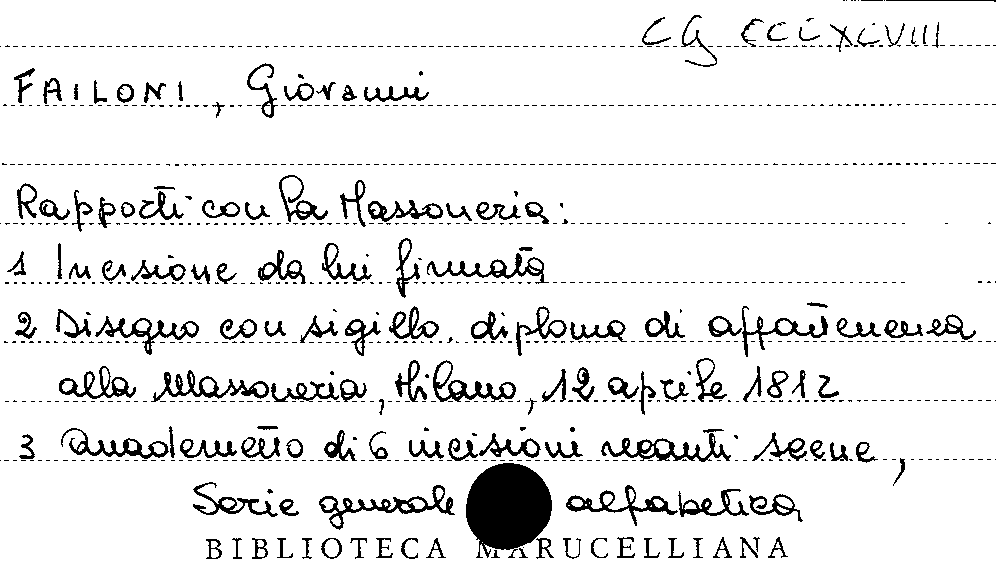 CG CCCXCVIII
FAILONI, Giovanni
Rapporti con la Massoneria:
1 Incisione da lui firmata
2 Disegno con sigillo, diploma di appartenenza
alla Massoneria, Milano, 12 aprile 1812
3 Quadernetto di 6 incisioni recanti scene,
Serie generale alfabetica
BIBLIOTECA MARUCELLIANA